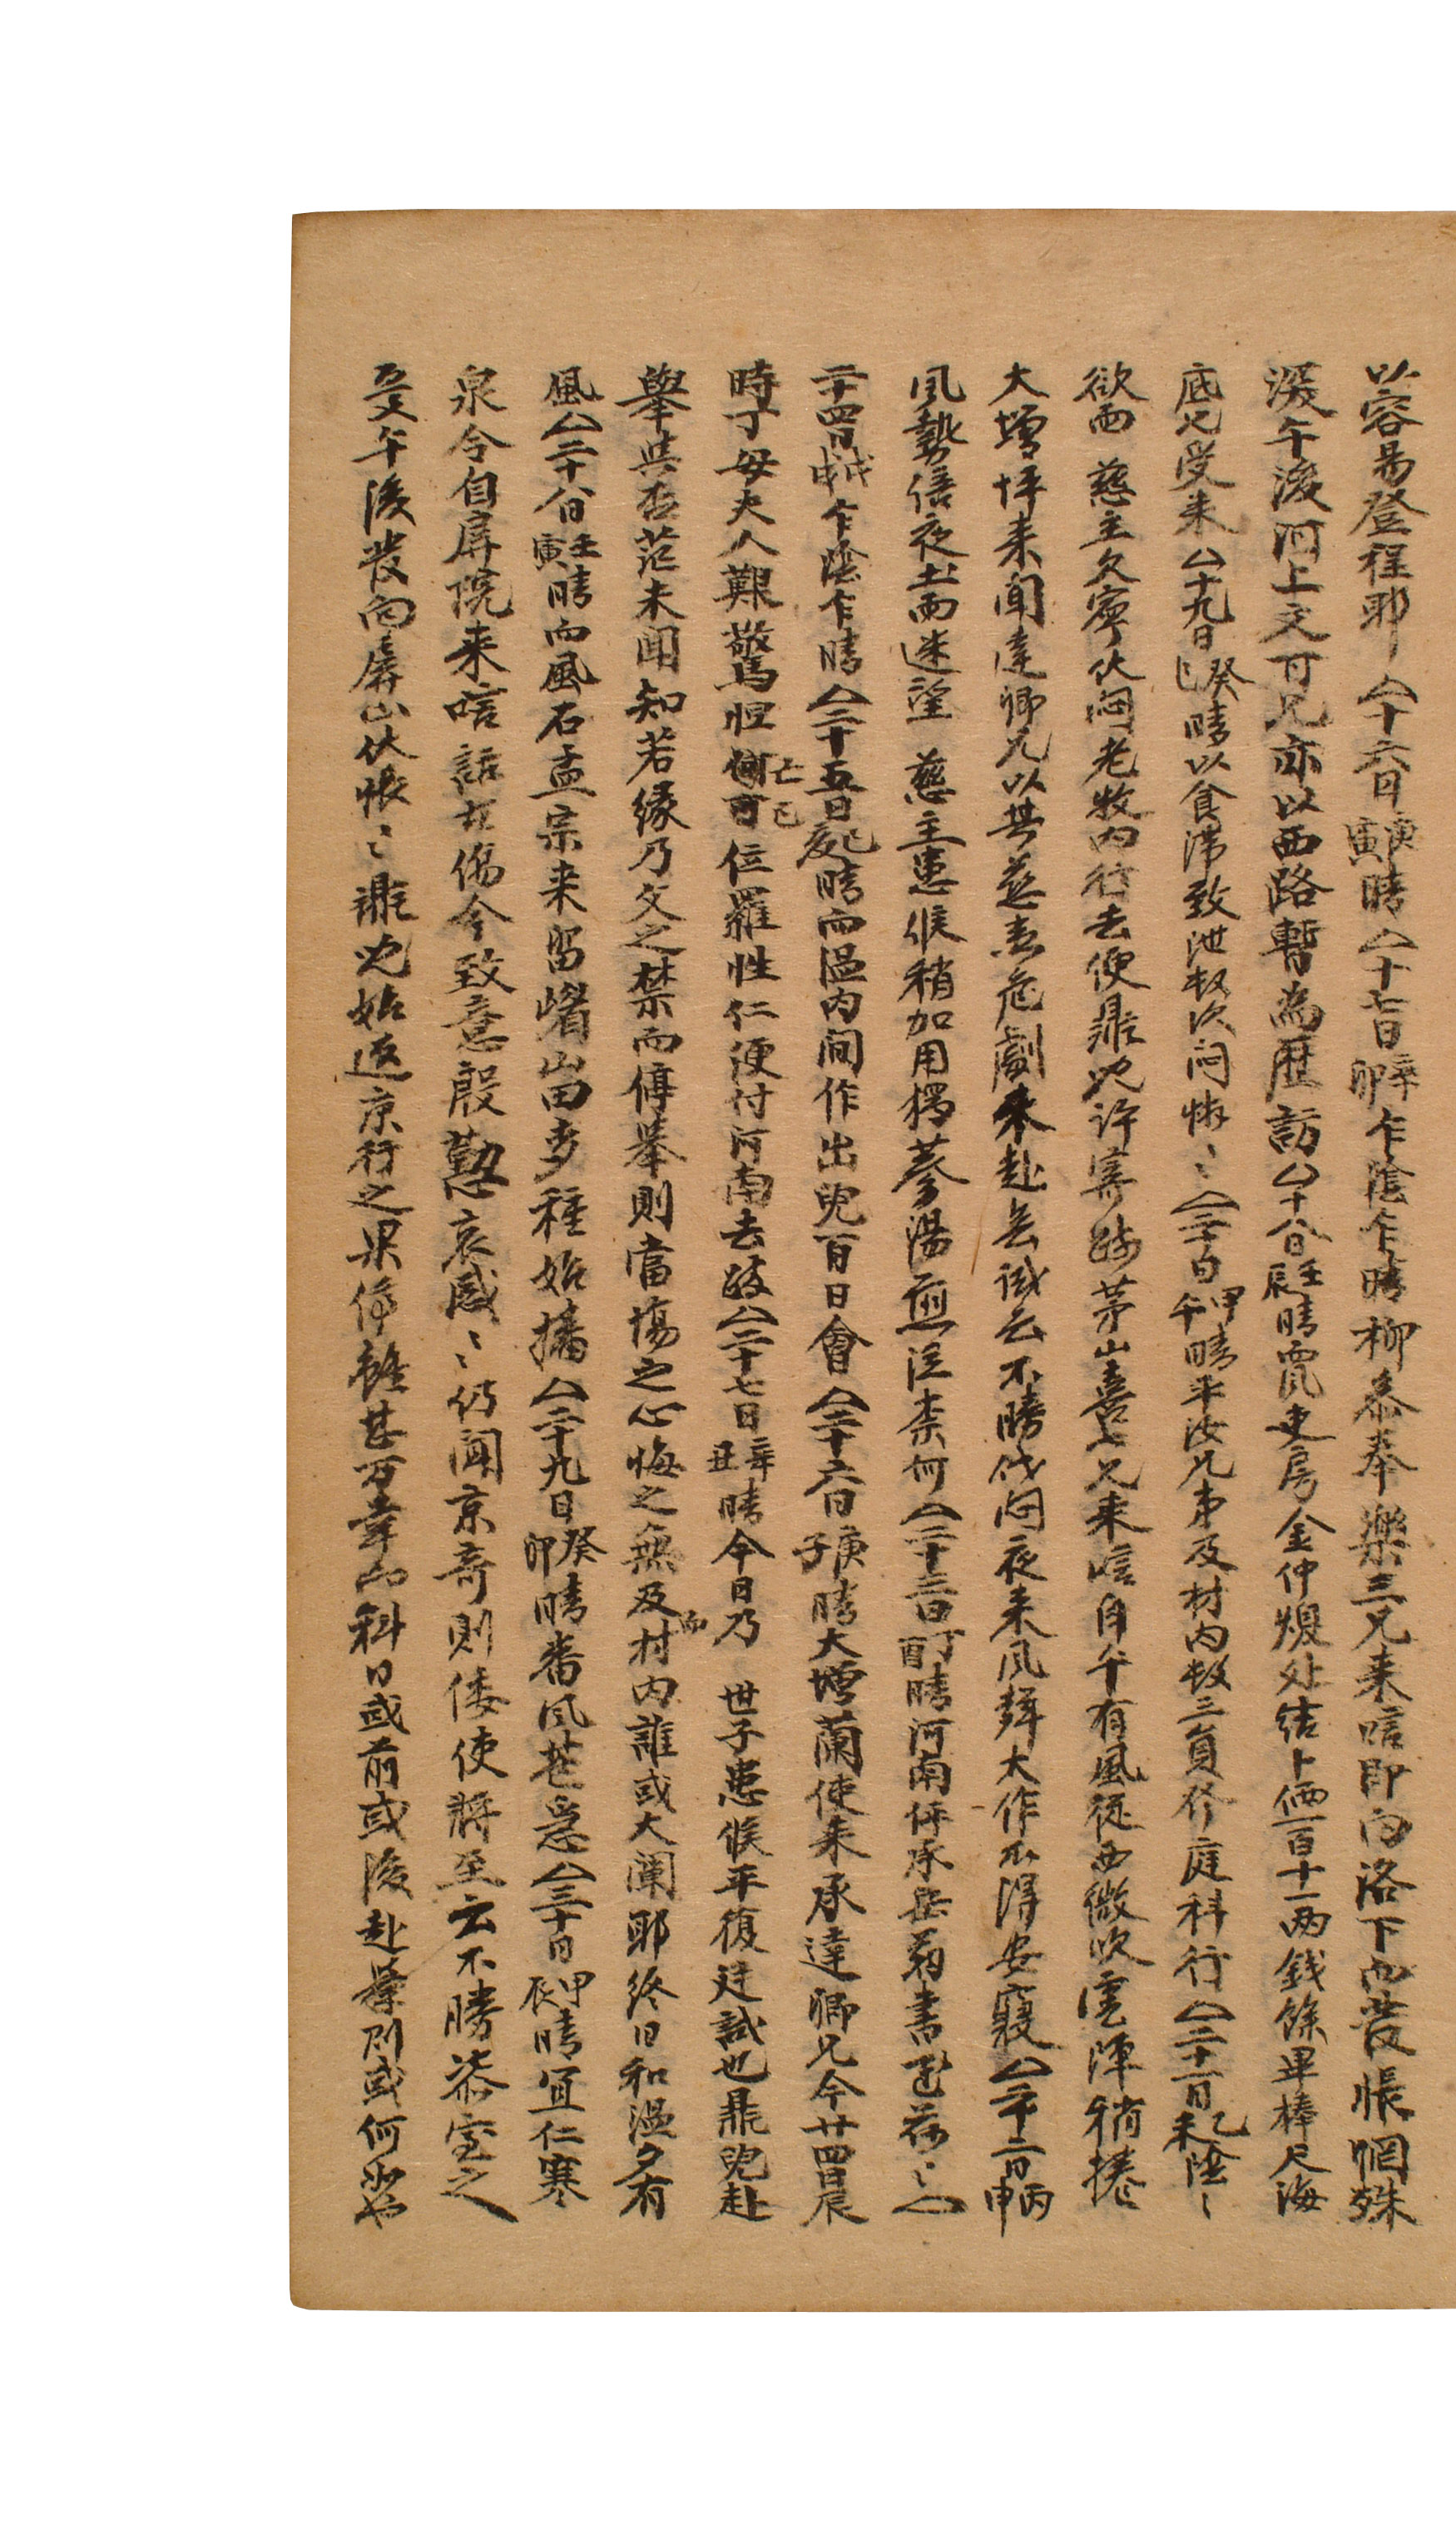 以容易登程耶△十六日庚寅晴△十七日辛卯乍陰乍晴柳泰奉樂三兄来唁卽向洛下而發悵惘殊
深午後河上文可兄亦以西路暫爲歷訪△十八日壬辰晴吏房金仲煥处結卜価一百十一両錢餘畢棒尺海
底兄受来△十九日癸巳晴以食滯致泄数次悶怵〻△二十日甲午晴平汝兄弟及村内数三員作庭科行△二十一日乙未陰〻
欲雨 慈主久寧伏悶老牧内行去便鼎兒許寄跡茅山喜七兄来唁自午有風從西微吹雲陣稍捲
大增坪来聞達卿兄以其慈患危劇来赴無減云不勝伐悶夜来風聲大作不得安寢△二十二日丙申
風勢倍夜土雨迷望 慈主患候稍加用樗蔘湯煎淫柰何△二十三日丁酉晴河南伻承岳翁書逬荷〻△
二十四日戊戌乍陰乍晴△二十五日己亥晴而温内間作出兒百日會△二十六日庚子晴大增蘭使来承達卿兄今廿四日辰
時丁母夫人艱驚怛何可亡已位羅性仁便付河南去跂△二十七日辛丑晴今日乃 世子患候平復廷試也鼎兒赴
擧與否茫未聞知若緣乃父之禁而停擧則當場之心悔之無及而村内誰或大闡耶終日和温夕有
風△二十八日壬寅晴而風石孟宗来留嵋山田麥種始播△二十九日癸卯晴番風茫急△三十日甲辰晴宜仁寒
泉令自屏院来唁話古傷今致意慇懃哀感〻仍聞京奇則倭使將至云不勝漆室之
憂午後發向屏山伏悵〻鼎兒始返京行之果停雖甚万幸而科日或前或後赴擧則或何必也